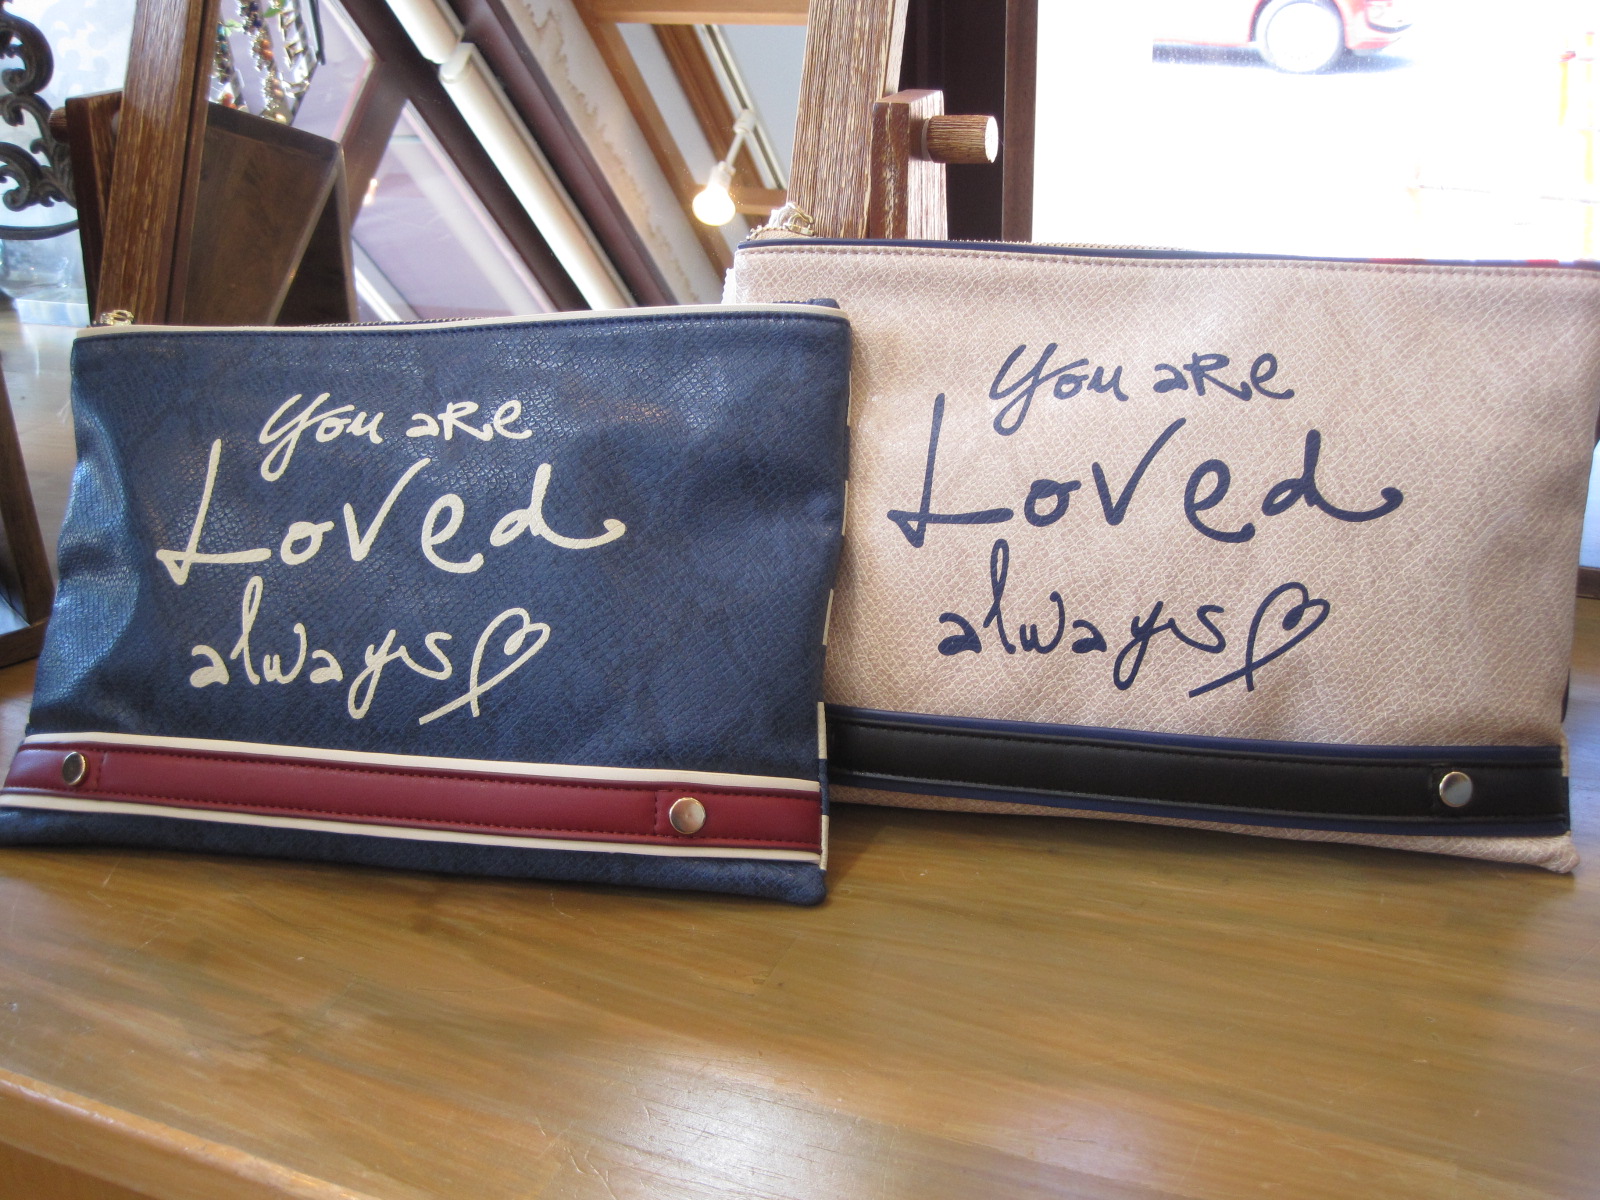 You are
Loved
always
You are
Loved
always